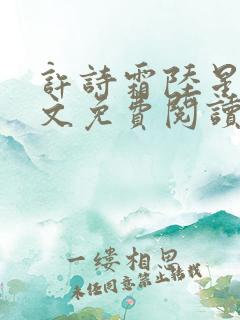 許詩霜陸星
文免費閱讀
一缕相思
未经同意禁止转载